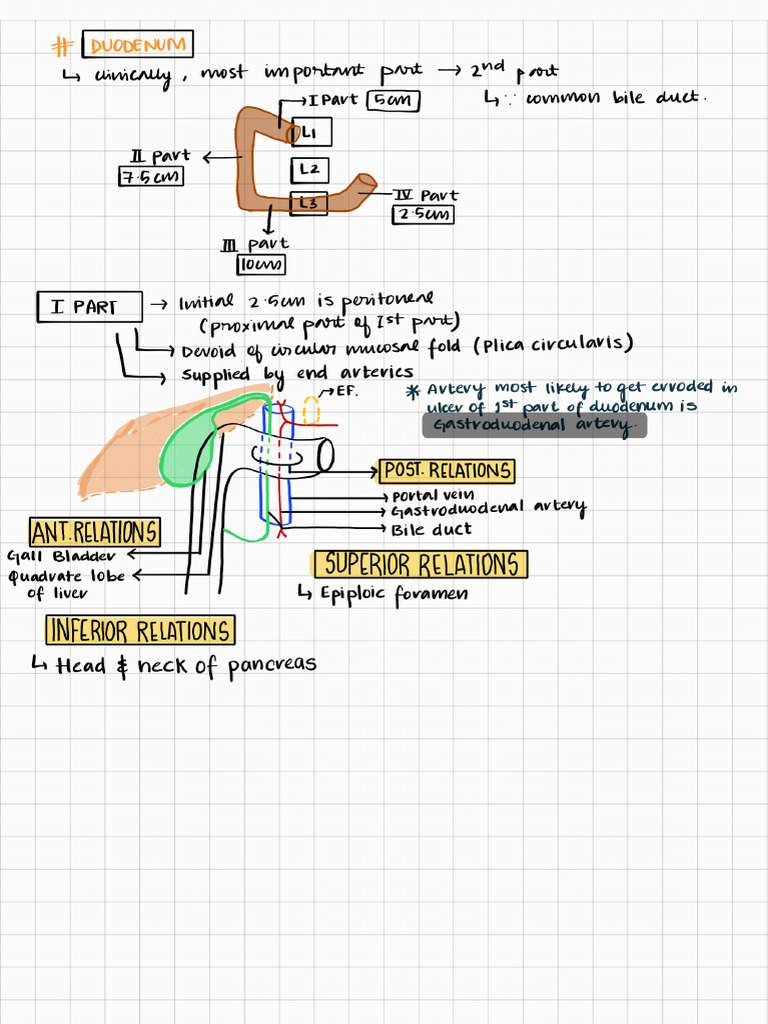 # DUODENUM
↳ clinically, most important part → 2nd part
↳ ∵ common bile duct.
I Part 5cm
L1
II part
7.5cm
L2
L3
IV Part
2.5cm
III part
10cm
I PART → Initial 2.5cm is peritoneal
(proximal part of Ist part)
→ Devoid of circular mucosal fold (Plica circularis)
→ Supplied by end arteries
→ EF.
* Artery most likely to get erroded in
ulcer of 1st part of duodenum is
Gastroduodenal artery.
POST. RELATIONS
Portal vein
Gastroduodenal artery
Bile duct
ANT. RELATIONS
Gall Bladder
Quadrate lobe
of liver
SUPERIOR RELATIONS
↳ Epiploic foramen
INFERIOR RELATIONS
↳ Head & neck of pancreas